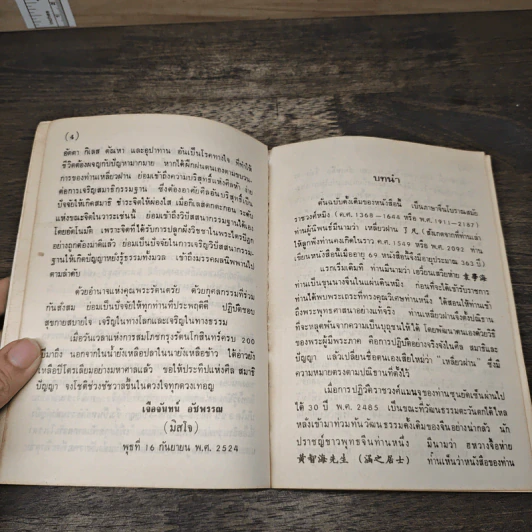 (4)
อัตตา กิเลส ตัณหา และอุปาทาน อันเป็นโรคทางใจ ที่ทำให้
ชีวิตต้องผจญกับปัญหามากมาย หากได้ฝึกฝนตนเองตามขบวน
การของท่านเหลี่ยวฝาน ย่อมเข้าถึงความบริสุทธิ์แห่งศีลห้า ง่าย
ต่อการเจริญสมาธิกรรมฐาน ซึ่งต้องอาศัยศีลอันบริสุทธิ์เป็น
ปัจจัยให้เกิดสมาธิ ชำระจิตให้ผ่องใส เมื่อกิเลสตกตะกอน ระดับ
แห่งขณะจิตในวาระเช่นนี้ ย่อมเข้าถึงวิปัสสนากรรมฐานได้เอง
โดยอัตโนมัติ เพราะจิตที่ได้รับการปลูกฝังวิชาในพระไตรปิฎก
อย่างถูกต้องมาดีแล้ว ย่อมเป็นปัจจัยในการเจริญวิปัสสนากรรม-
ฐานให้เกิดปัญญาหยั่งรู้ธรรมทั้งมวล เข้าถึงมรรคผลนิพพานไป
ตามลำดับ
ด้วยอำนาจแห่งคุณพระรัตนตรัย ด้วยกุศลกรรมที่ร่วม
กันสั่งสม ย่อมเป็นปัจจัยให้ทุกท่านที่ประพฤติดี ปฏิบัติชอบ
สุขกายสบายใจ เจริญในทางโลกและเจริญในทางธรรม
เมื่อวันเวลาแห่งการสมโภชกรุงรัตนโกสินทร์ครบ 200
ปีมาถึง นอกจากในน้ำยังเหลือปลาในนายังเหลือข้าว ใต้อ่าวยัง
เหลือปิโตรเลียมอย่างมหาศาลแล้ว ขอให้ประทีปแห่งศีล สมาธิ
ปัญญา จงโชติช่วงชัชวาลขึ้นในดวงใจทุกดวงเทอญ
เจือจันทน์ อัชพรรณ
(มิสโจ)
พุธที่ 16 กันยายน พ.ศ. 2524
บทนำ
ต้นฉบับดั้งเดิมของหนังสือนี้ เป็นภาษาจีนโบราณสมัย
ราชวงศ์หมิง (ค.ศ. 1368-1644 หรือ พ.ศ. 1911-2187)
ท่านผู้นิพนธ์มีนามว่า เหลี่ยวฝาน 了凡 (สังเกตจากที่ท่านเล่า
ให้ลูกฟังท่านคงเกิดในราว ค.ศ. 1549 หรือ พ.ศ. 2092 ท่าน
เขียนหนังสือนี้เมื่ออายุ 69 หนังสือนี้จึงมีอายุประมาณ 363 ปี)
แรกเริ่มเดิมที ท่านมีนามว่า เอวียนเสวียห่าย 袁學海
ท่านเป็นขุนนางจีนในแผ่นดินหมิง ก่อนที่จะได้เข้ารับราชการ
ท่านได้พบพระเถระที่ทรงคุณวิเศษท่านหนึ่ง ได้สอนให้ท่านเข้า
ถึงพระพุทธศาสนาอย่างแท้จริง ท่านเหลี่ยวฝานจึงตั้งปณิธาน
ที่จะหลุดพ้นจากความเป็นบุถุชนให้ได้ โดยพัฒนาตนเองด้วยวิธี
ของพระผู้มีพระภาค คือการปฏิบัติอย่างจริงจังในศีล สมาธิและ
ปัญญา แล้วเปลี่ยนชื่อตนเองเสียใหม่ว่า "เหลี่ยวฝาน" ซึ่งมี
ความหมายตรงตามปณิธานที่ตั้งไว้
เมื่อการปฏิวัติราชวงศ์แมนจูของท่านซุนยัดเซ็นผ่านไป
ได้ 30 ปี พ.ศ. 2485 เป็นขณะที่วัฒนธรรมตะวันตกได้ไหล
หลั่งเข้ามาท่วมทับวัฒนธรรมดั้งเดิมของจีนอย่างน่ากลัว นัก
ปราชญ์ชาวพุทธจีนท่านหนึ่ง มีนามว่า ฮหวางจื้อห่าย
黃智海先生 (居士) ท่านเห็นว่าหนังสือของท่าน